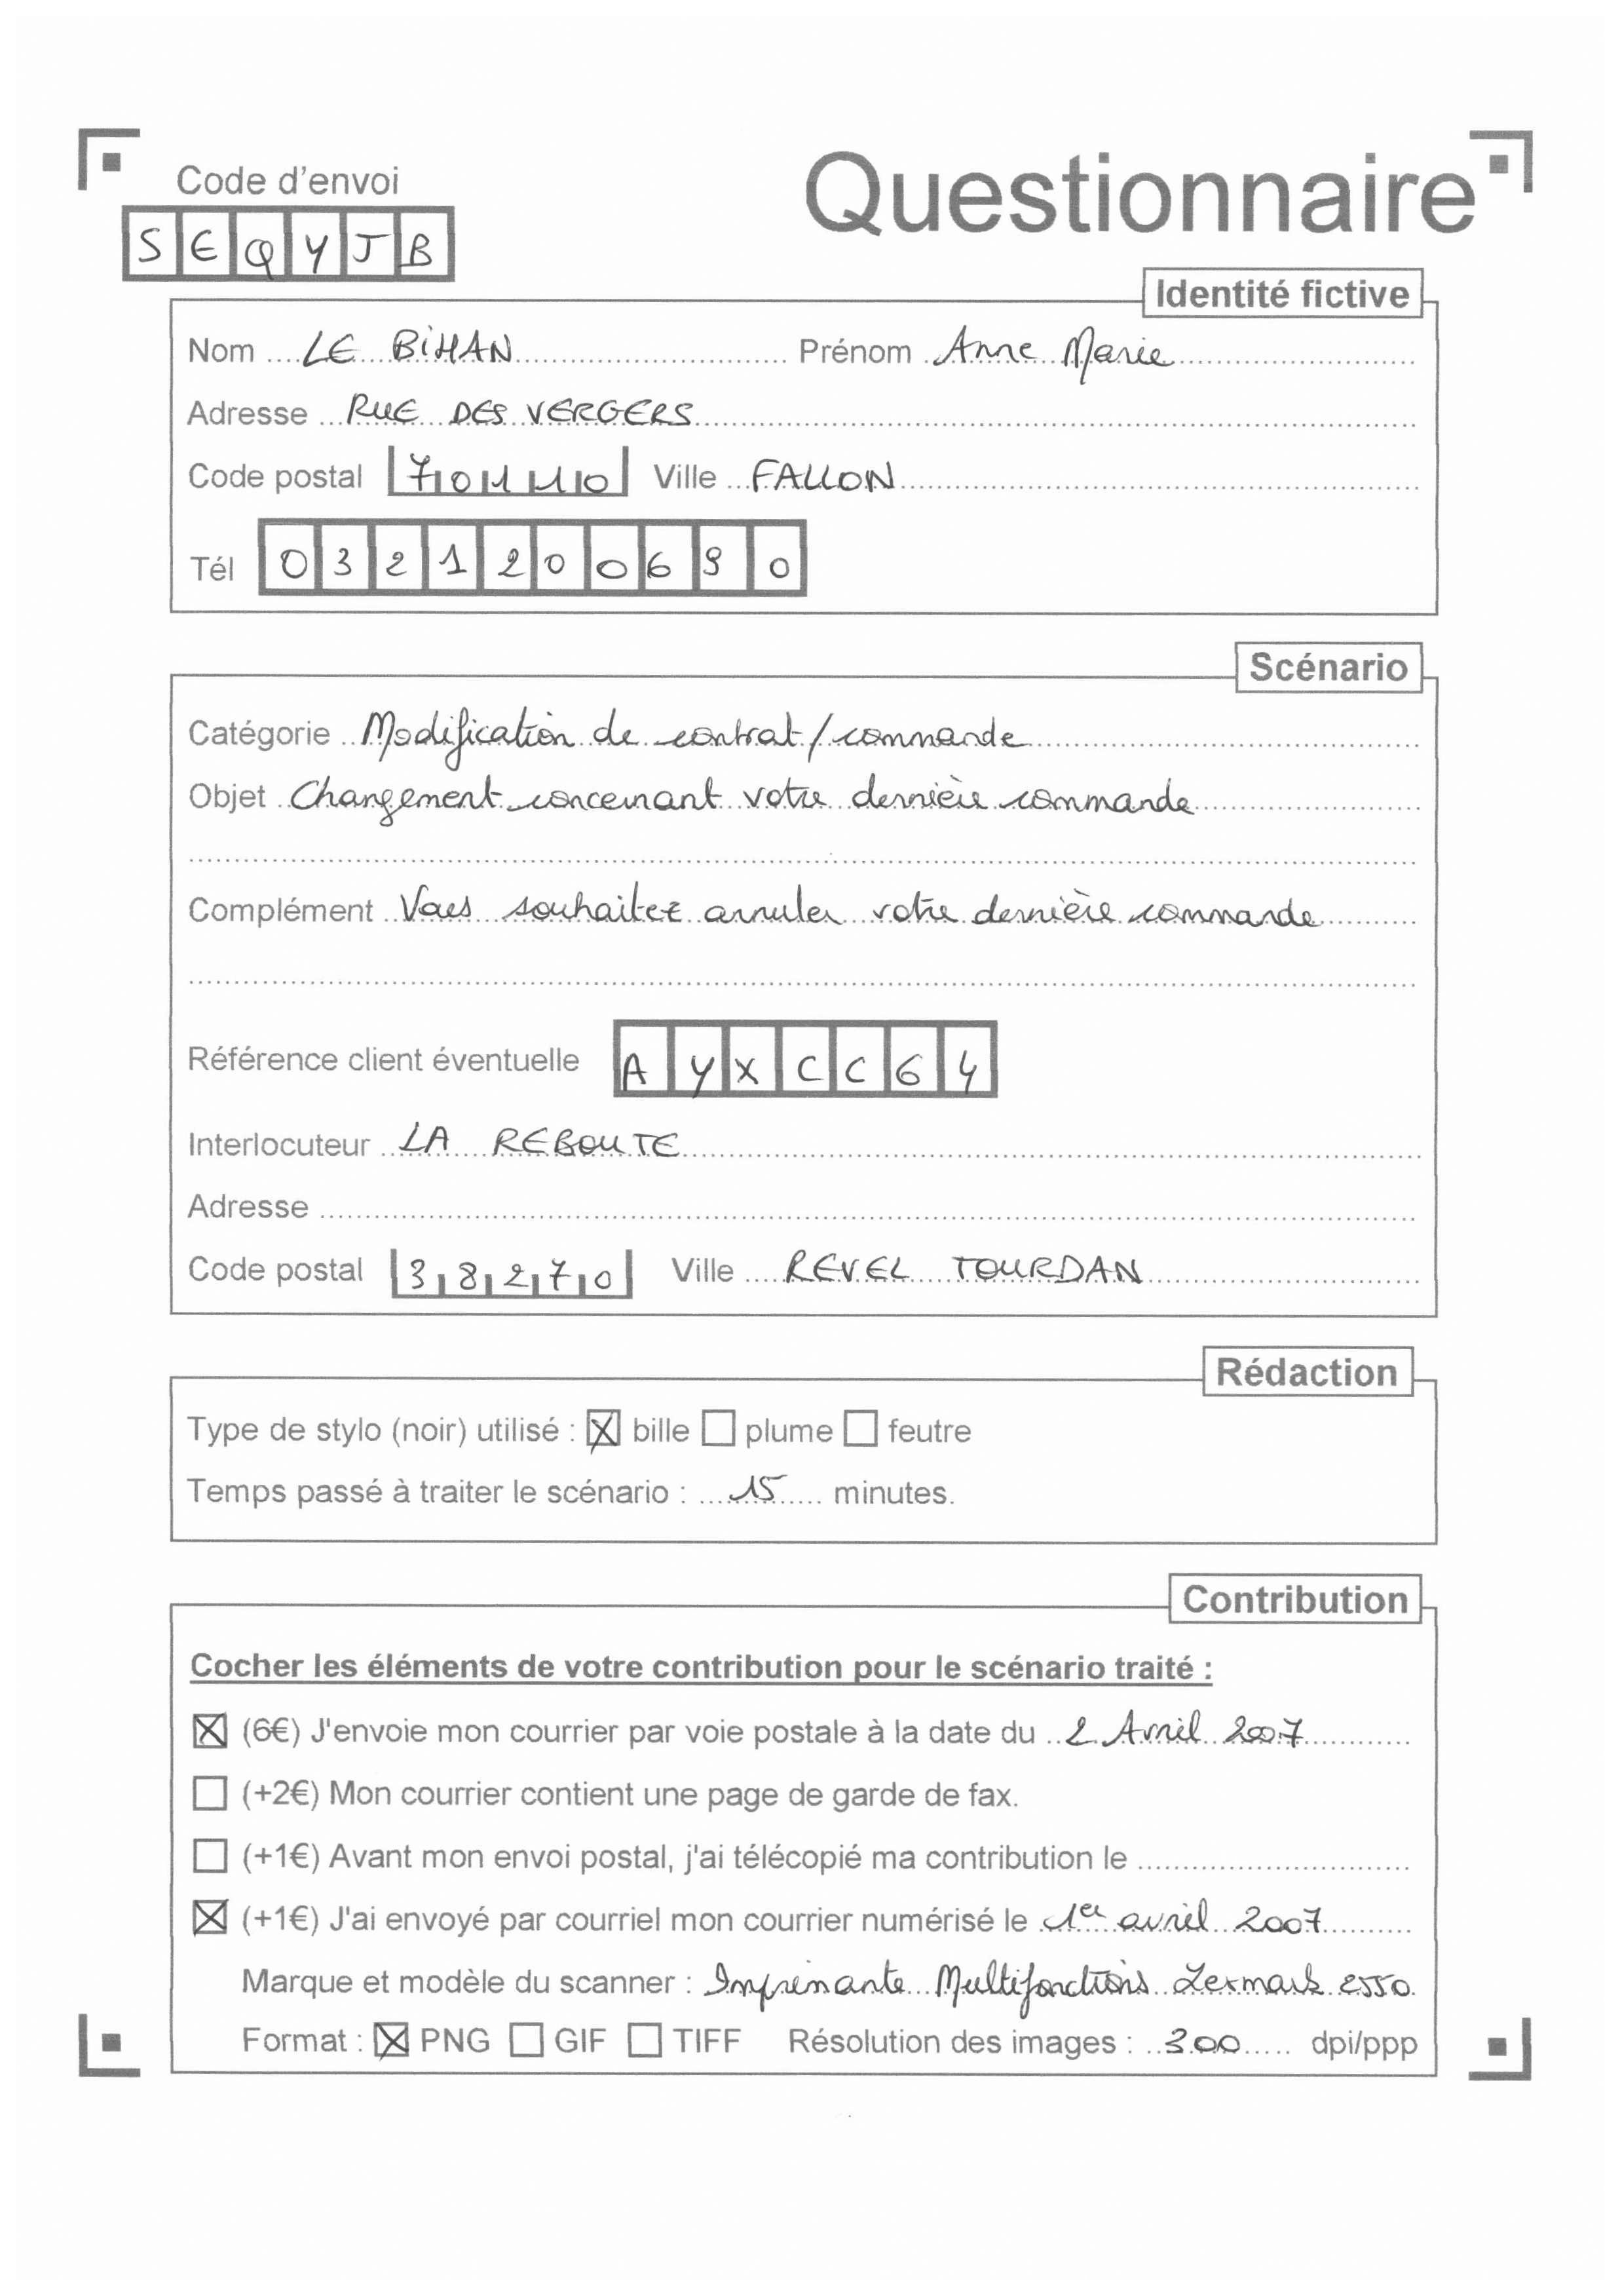 Code d'envoi
Questionnaire
SEQYJB
Identité fictive
Nom LE BIHAN Prénom Anne Marie
Adresse RUE DES VERGERS
Code postal 70110 Ville FALLON
Tél 0321200690
Scénario
Catégorie Modification de contrat/commande
Objet Changement concernant votre dernière commande
Complément Vous souhaitez annuler votre dernière commande
Référence client éventuelle AYXCC64
Interlocuteur LA REBOUTE
Adresse
Code postal 38270 Ville REVEL TOURDAN
Rédaction
Type de stylo (noir) utilisé : ☒ bille ☐ plume ☐ feutre
Temps passé à traiter le scénario : 15 minutes.
Contribution
Cocher les éléments de votre contribution pour le scénario traité :
☒ (6€) J'envoie mon courrier par voie postale à la date du 2 Avril 2007
☐ (+2€) Mon courrier contient une page de garde de fax.
☐ (+1€) Avant mon envoi postal, j'ai télécopié ma contribution le
☒ (+1€) J'ai envoyé par courriel mon courrier numérisé le 1er avril 2007
Marque et modèle du scanner : Imprimante Multifonctions Lexmark 2550
Format : ☒ PNG ☐ GIF ☐ TIFF Résolution des images : 300 dpi/ppp